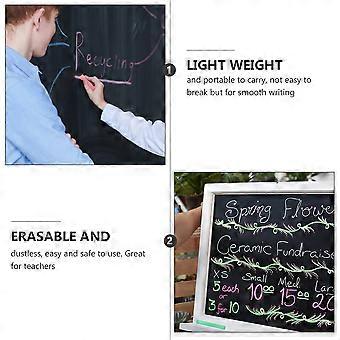 Recycling
1
LIGHT WEIGHT
and portable to carry, not easy to
break but for smooth writing
ERASABLE AND
dustless, easy and safe to use. Great
for teachers
2
Spring Flowe
Ceramic Fundraise
XS Small Med Lar
5 each 10.00 15.00 20
or
3 for 10